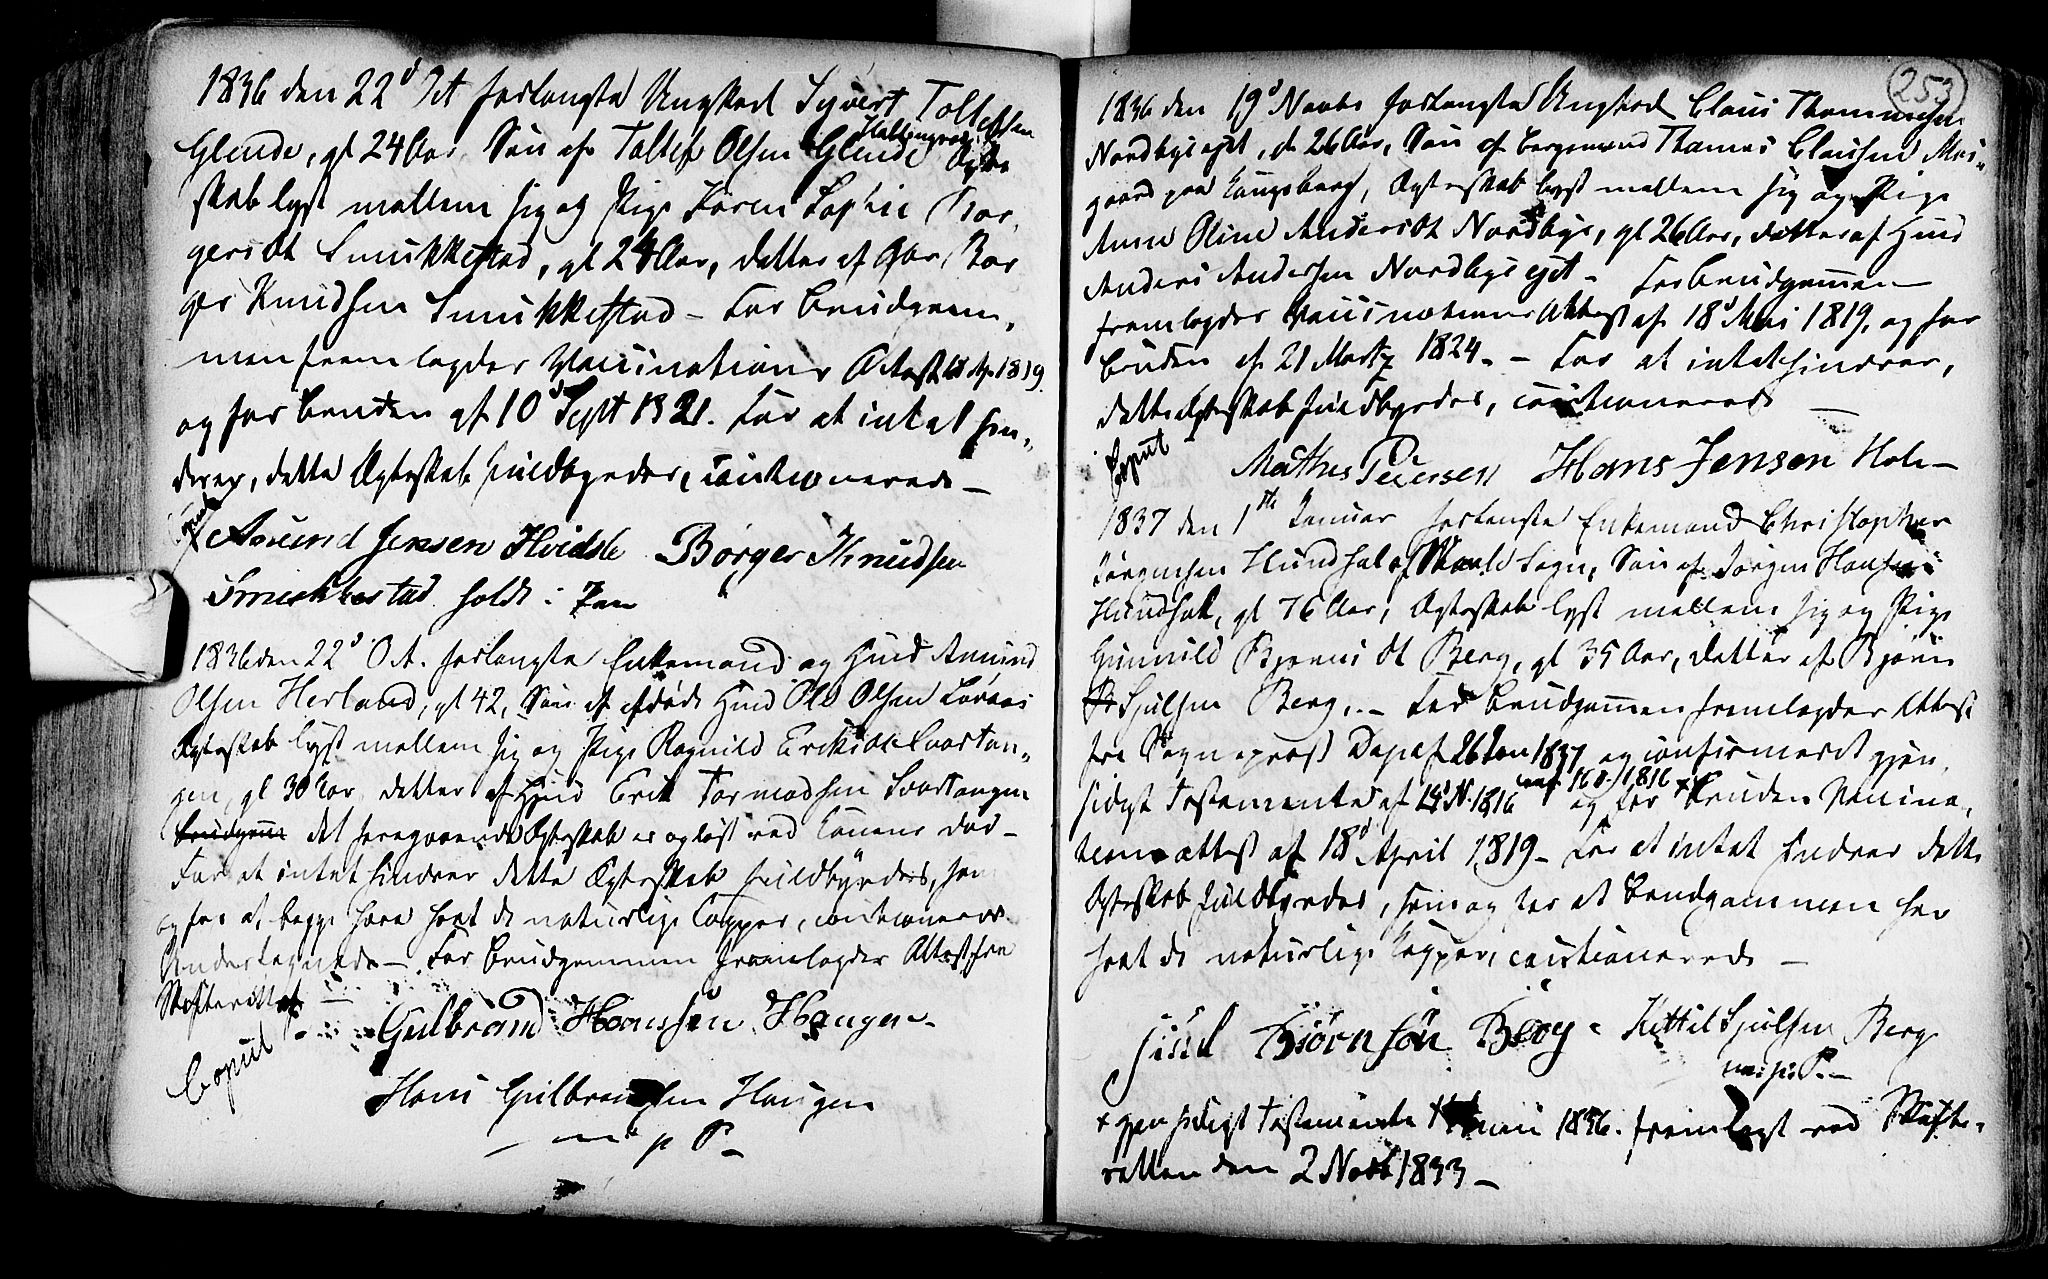 1836 den 22d Oct forlangte Ungkarl Syvert Tollefsen
Glende, gl 24 Aar, Søn af Tollef Olsen Glende Hallingdal Ægte
skab lyst mellem sig og Pige Karen Sophie Bør
gersdt Smukkestad, gl 24 Aar, datter af Gbr Bør
ger Knudsen Smukkestad – For Brudgom,
men fremlagdes Vaccinations Attest 18 Ap 1819
og for Bruden af 10d Sept 1821. For at intet hin,
drer, dette Ægteskab fuldbyrdes, cautionerede –
Amund Jensen Hvidste Børger Knudsen
Smukkestad holdt i Pen
1836 den 22d Oct. forlangte Enkemand og Huusmd Amund
Olsen Herland, gl 42, Søn af afdøde Huusmd Ole Olsen
Ægteskab lyst mellem sig og Pige Ragnild Eriksdt Svartan,
gen, gl 30 Aar datter af Huusmd Erik Tormodsen Svartangen
det foregaaende Ægteskab er opløst ved Konens død –
For at intet hindrer dette Ægteskab fuldbyrdes, som
og for at begge have havt de naturlige Copper, cautionerede
Undertegnede – For Brudgommen fremlagdes Attest fra
Skifteretten
Copul
Gulbrand Hanssen Haugen
Hans Gulbrandsen Haugen
m p P –
253
1836 den 19d Novbr forlangte Ungkarl Claus Thommesen
Nordbyeejet, gl 26 Aar, Søn af Bergmand Thomas Clausen Moe
gaard paa Kongsberg, Ægteskab lyst mellem sig og Pige
Anne Oline Andersdt Nordbye, gl 26 Aar, datter af Huusmd
Anders Andersen Nordbyeejet – For Brudgommen
fremlagdes Vaccinations Attest af 18d Mai 1819, og for
Bruden af 21 Martz 1824 – For at intet hindrer,
dette Ægteskab fuldbyrdes, cautionerede –
Copul
Mathes Pedersen Hans Jensen Holm
1837 den 1ste Januar forlangte Enkemand Christopher
Jørgensen Hundsal af Sogn, Søn af Jørgen Hansen
Hundsal, gl 76 Aar, Ægteskab lyst mellem sig og Pige
Gunnild Bjørnsdt Berg, gl 35 Aar, datter af Bjørn
Sjulsen Berg. – For Brudgommen fremlagdes Attest
fra Sogneprest Dape af 26 Jan 1837 og confirmeret gjen
sidigt Testamente af 14d N. 1816 conf 16 1816 + og for Bruden Vaccina,
tions attest af 18d April 1819 – For at intet hindrer dette
Ægteskab fuldbyrdes, som og for at Brudgommen har
havt de naturlige Copper, cautionerede –
Bjørn søn Berg Kittil Sjulsen Berg
m p P. –
+ gjensidigt Testamente 1836. fremlagt ved Skifte,
retten den 2 Novb 1833 –